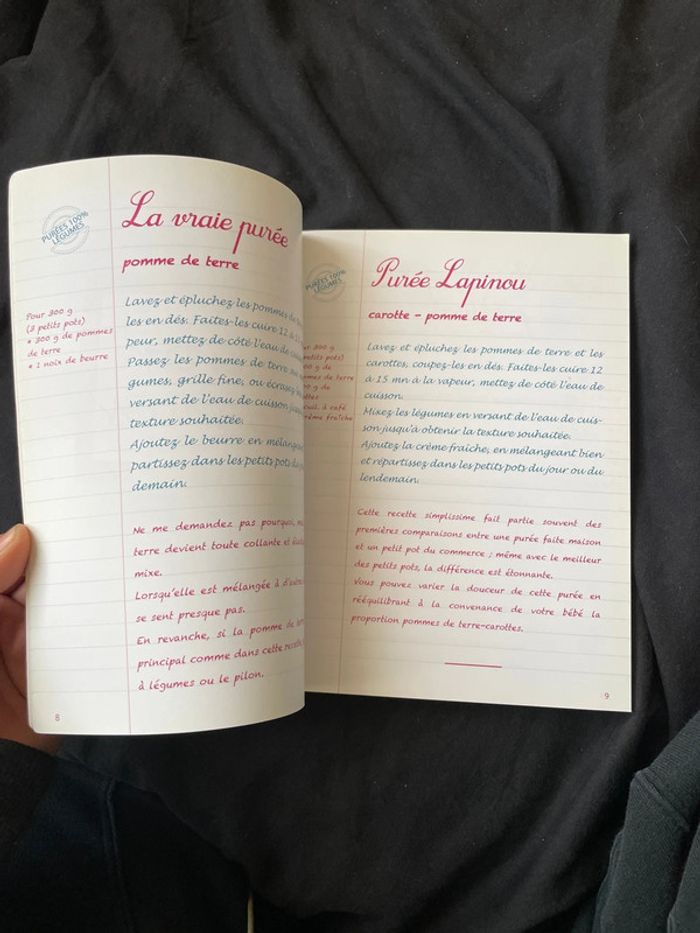 PURÉES 100%
LÉGUMES
La vraie purée
pomme de terre
Pour 300 g
(3 petits pots)
• 300 g de pommes
de terre
• 1 noix de beurre
Lavez et épluchez les pommes de
les en dés. Faites-les cuire 12 à
peur, mettez de côté l'eau de
Passez les pommes de terre
gumes, grille fine, ou écrasez
versant de l'eau de cuisson
texture souhaitée.
Ajoutez le beurre en mélangeant
partissez dans les petits pots du
demain.
Ne me demandez pas pourquoi,
terre devient toute collante et
mixe.
Lorsqu'elle est mélangée à
se sent presque pas.
En revanche, si la pomme de
principal comme dans cette recette,
à légumes ou le pilon.
8
PURÉES 100%
LÉGUMES
Purée Lapinou
carotte – pomme de terre
300 g
petits pots)
g de
de terre
g de
à café
fraîche
Lavez et épluchez les pommes de terre et les
carottes, coupez-les en dés. Faites-les cuire 12
à 15 mn à la vapeur, mettez de côté l'eau de
cuisson.
Mixez les légumes en versant de l'eau de cuis-
son jusqu'à obtenir la texture souhaitée.
Ajoutez la crème fraîche, en mélangeant bien
et répartissez dans les petits pots du jour ou du
lendemain.
Cette recette simplissime fait partie souvent des
premières comparaisons entre une purée faite maison
et un petit pot du commerce ; même avec le meilleur
des petits pots, la différence est étonnante.
Vous pouvez varier la douceur de cette purée en
rééquilibrant à la convenance de votre bébé la
proportion pommes de terre-carottes.
9